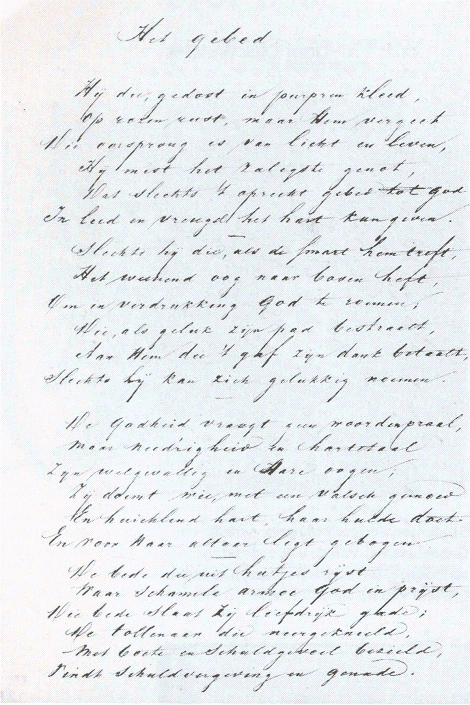 Het gebed
Hij die, gedost in purpren kleed,
Op rozen rust, maar Hem vergeet
Die oorsprong is van licht en leven,
Hij mist het zaligste genot,
Dat slechts 't oprecht gebed tot God
In leed en vreugd het hart kan geven.
Slechts hij die, als de smart hem treft,
Het weenend oog naar boven heft,
Om in verdrukking God te roemen;
Die, als geluk zijn pad bestraalt,
Aan Hem die 't gaf zijn dank betaalt,
Slechts hij kan zich gelukkig noemen.
De Godheid vraagt geen woordenpraal,
Maar needrigheid en hartetaal
Zijn welgevallig in Hare oogen;
Zij doemt wie, met een valsch gemoed
En huichlend hart, haar hulde doet
En voor Haar altaar ligt gebogen.
De bede die uit hutjes rijst
Waar schamele armoe God in prijst,
Die bede slaat Zij liefdrijk gade;
De tollenaar die neergeknield,
Met boete en schuldgevoel bezield,
Vindt schuldvergeving en genade.